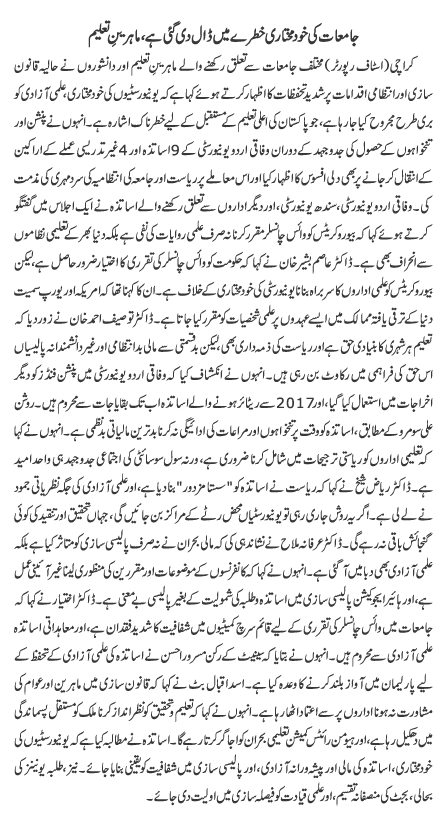 جامعات کی خود مختاری خطرے میں ڈال دی گئی ہے، ماہرینِ تعلیم
کراچی (اسٹاف رپورٹر) مختلف جامعات سے تعلق رکھنے والے ماہرینِ تعلیم اور دانشوروں نے حالیہ قانون
سازی اور انتظامی اقدامات پر شدید تحفظات کا اظہار کرتے ہوئے کہا ہے کہ یونیورسٹیوں کی خود مختاری، علمی آزادی کو
بری طرح مجروح کیا جا رہا ہے، جو پاکستان کی اعلیٰ تعلیم کے مستقبل کے لیے خطرناک اشارہ ہے۔ انہوں نے پنشن اور
تنخواہوں کے حصول کی جدوجہد کے دوران وفاقی اردو یونیورسٹی کے 9 اساتذہ اور 4 غیر تدریسی عملے کے اراکین
کے انتقال کر جانے پر بھی دلی افسوس کا اظہار کیا اور اس معاملے پر ریاست اور جامعہ کی انتظامیہ کی سرد مہری کی مذمت
کی۔ وفاقی اردو یونیورسٹی، سندھ یونیورسٹی، اور دیگر اداروں سے تعلق رکھنے والے اساتذہ نے ایک اجلاس میں گفتگو
کرتے ہوئے کہا کہ بیوروکریٹس کو وائس چانسلر مقرر کرنا نہ صرف علمی روایات کی نفی ہے بلکہ دنیا بھر کے تعلیمی نظاموں
سے انحراف بھی ہے۔ ڈاکٹر عاصم بشیر خان نے کہا کہ حکومت کو وائس چانسلر کی تقرری کا اختیار ضرور حاصل ہے، لیکن
بیوروکریٹس کو علمی اداروں کا سربراہ بنانا یونیورسٹی کی خود مختاری کے خلاف ہے۔ ان کا کہنا تھا کہ امریکہ اور یورپ سمیت
دنیا کے ترقی یافتہ ممالک میں ایسے عہدوں پر علمی شخصیات کو مقرر کیا جاتا ہے۔ ڈاکٹر توصیف احمد خان نے زور دیا کہ
تعلیم ہر شہری کا بنیادی حق ہے اور ریاست کی ذمہ داری بھی، لیکن بدقسمتی سے مالی بد انتظامی اور غیر دانشمندانہ پالیسیاں
اس حق کی فراہمی میں رکاوٹ بن رہی ہیں۔ انہوں نے انکشاف کیا کہ وفاقی اردو یونیورسٹی میں پنشن فنڈز کو دیگر
اخراجات میں استعمال کیا گیا، اور 2017 سے ریٹائر ہونے والے اساتذہ اب تک بقایاجات سے محروم ہیں۔ روشن
علی سومرو کے مطابق، اساتذہ کو وقت پر تنخواہوں اور مراعات کی ادائیگی نہ کرنا بدترین مالیاتی بدنظمی ہے۔ انہوں نے کہا
کہ تعلیمی اداروں کو ریاستی ترجیحات میں شامل کرنا ضروری ہے، ورنہ سول سوسائٹی کی اجتماعی جدوجہد ہی واحد امید
ہے۔ ڈاکٹر ریاض شیخ نے کہا کہ ریاست نے اساتذہ کو "سستا مزدور" بنا دیا ہے، اور علمی آزادی کی جگہ نظریاتی جمود
نے لے لی ہے۔ اگر یہ روش جاری رہی تو یونیورسٹیاں محض رٹے کے مراکز بن جائیں گی، جہاں تحقیق اور تنقید کی کوئی
گنجائش باقی نہ رہے گی۔ ڈاکٹر عرفانہ ملاح نے نشاندہی کی کہ مالی بحران نے نہ صرف پالیسی سازی کو متاثر کیا ہے بلکہ
علمی آزادی بھی دباؤ میں آ گئی ہے۔ انہوں نے کہا کہ کانفرنسوں کے موضوعات اور مقررین کی منظوری لینا غیر آئینی عمل
ہے، اور ہائیر ایجوکیشن پالیسی سازی میں اساتذہ و طلبہ کی شمولیت کے بغیر پالیسی بے معنی ہے۔ ڈاکٹر اختیار نے کہا کہ
جامعات میں وائس چانسلر کی تقرری کے لیے قائم سرچ کمیٹیوں میں شفافیت کا شدید فقدان ہے، اور معاہداتی اساتذہ
علمی آزادی سے محروم ہیں۔ انہوں نے بتایا کہ سینیٹ کے رکن مسرور احسن نے اساتذہ کی علمی آزادی کے تحفظ کے
لیے پارلیمان میں آواز بلند کرنے کا وعدہ کیا ہے۔ اسد اقبال بٹ نے کہا کہ قانون سازی میں ماہرین اور عوام کی
مشاورت نہ ہونا اداروں پر سے اعتماد اٹھا رہا ہے۔ انہوں نے کہا کہ تعلیم و تحقیق کو نظر انداز کرنا ملک کو مستقل پسماندگی
میں دھکیل رہا ہے، اور ہیومن رائٹس کمیشن تعلیمی بحران کو اجاگر کرتا رہے گا۔ اساتذہ نے مطالبہ کیا ہے کہ یونیورسٹیوں کی
خود مختاری، اساتذہ کی مالی اور پیشہ ورانہ آزادی، اور پالیسی سازی میں شفافیت کو یقینی بنایا جائے۔ نیز، طلبہ یونینز کی
بحالی، بجٹ کی منصفانہ تقسیم، اور علمی قیادت کو فیصلہ سازی میں اولیت دی جائے۔